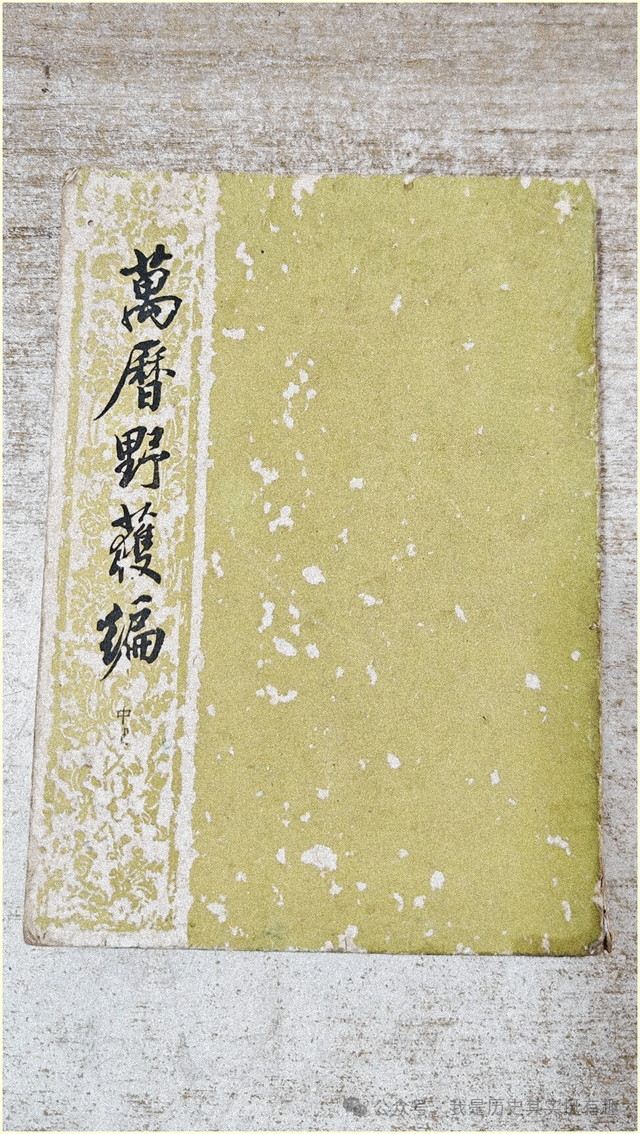 萬曆野獲編
中
公众号 · 我是历史其实很有趣